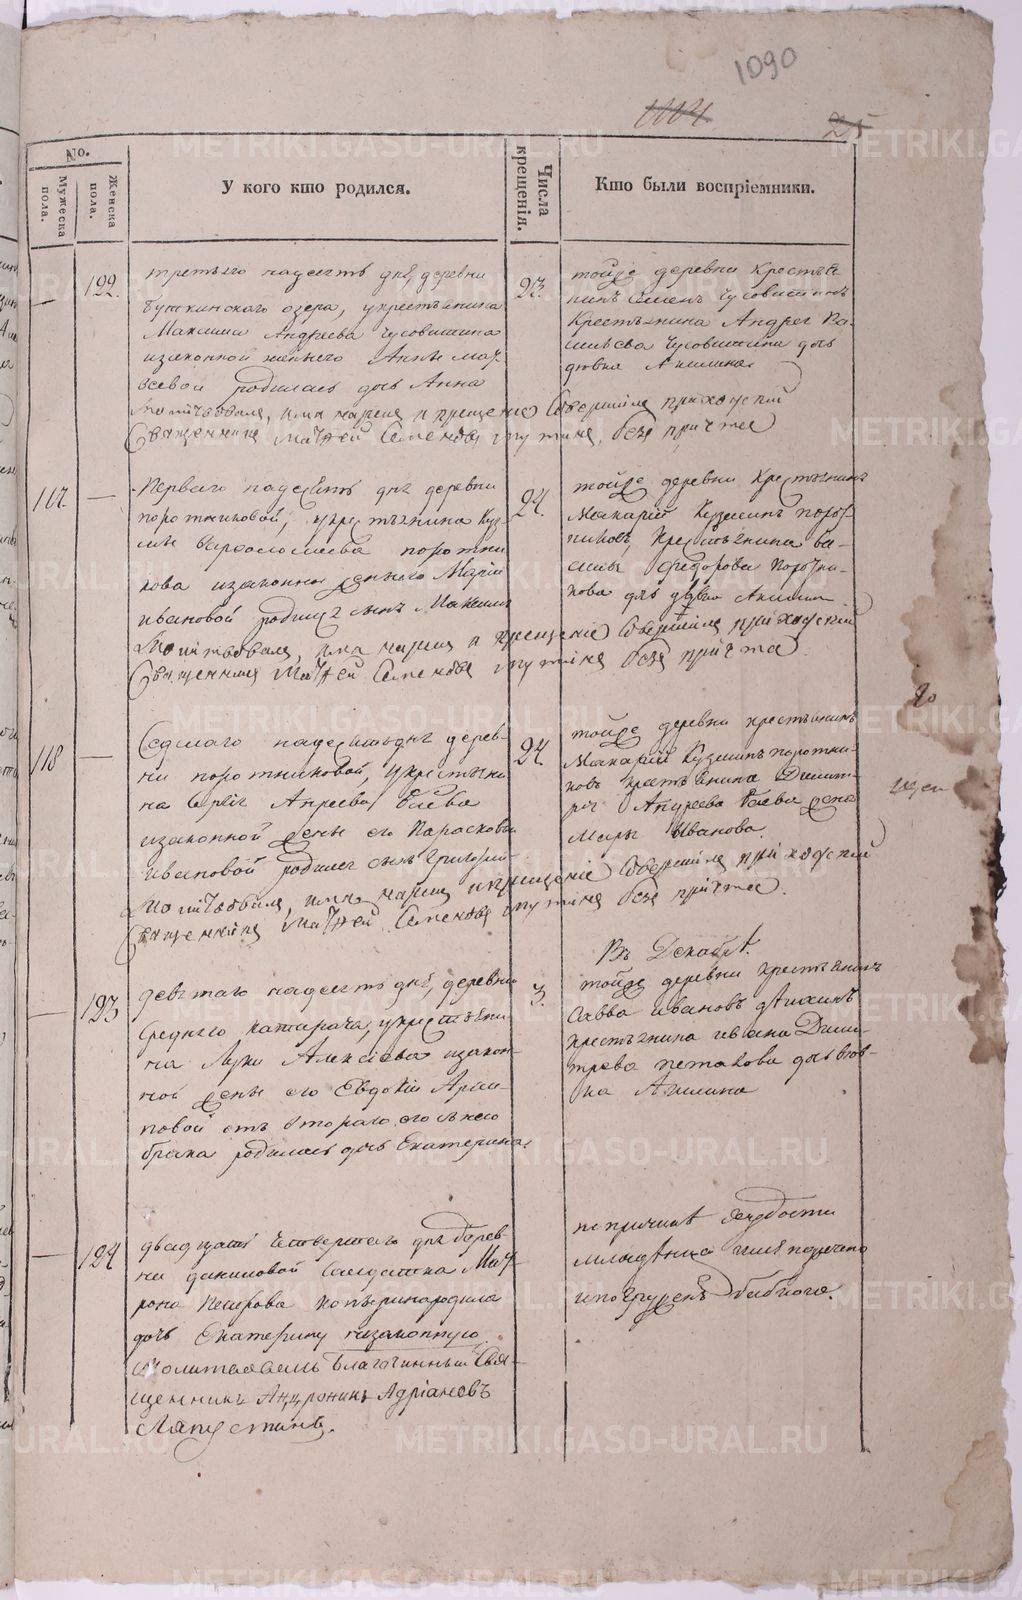 1090
1114
25
No.
Мужеска пола.
Женска пола.
У кого кто родился.
Числа крещенія.
Кто были воспріемники.
122.
третьего надесять дня, деревни
Буткинскаго озера, у крестьянина
Максима Андреева Чусовитина
изаконной жены его Анны Мат-
веевой родилась дочь Анна
Молитвовалъ, имя нарекъ и крещеніе совершилъ приходскій
Священникъ Матфей Семеновъ Путинъ, безъ причта
23.
тойже деревни крестья-
нинъ Семенъ Чусовитинъ
Крестьянина Андрея Ва-
сильева Чусовитина дочь
девка Акилина
117.
Перваго надесять дня деревни
поротниковой, укрестьянина Куз-
мы Варфоломеева поротни-
кова изаконной жены его Маріи
ивановой родился сынъ Максимъ
Молитвовалъ, имя нарекъ и крещеніе совершилъ приходскій
Священникъ Матфей Семеновъ Путинъ безъ причта.
24.
тойже деревни крестьянинъ
Макарій Кузминъ порот-
никовъ, Крестьянина
Федорова поротни-
кова дочь девка Акилина
118
Седмаго надесять дня дерев-
ни поротниковой, укрестьяни-
на Сергія Андреева Баева
изаконной жены его Парасковьи
ивановой родился сынъ Григорій
Молитвовалъ, имя нарекъ и крещеніе совершилъ приходскій
Священникъ Матфей Семеновъ Путинъ безъ причта.
24.
тойже деревни крестьянинъ
Макарій Кузминъ поротни-
ковъ крестьянина Димит-
рія Андреева Баева жена
Марья Иванова.
123
девятаго надесять дня, деревни
Средняго катарача, укрестьяни-
на Луки Алексіева изакон-
ной жены его Евдокіи
отъ втораго его с нею
брака родилась дочь Екатерина.
Въ Декабрѣ.
3.
тойже деревни крестьянинъ
Савва Ивановъ
крестьянина ивана Дими-
тріева дочь
Акилина
124
двадцать четвертаго дня дерев-
ни даниловой Солдатка Мат-
рона Петрова родила
дочь Екатерину незаконную.
Молитвовалъ Благочинный Свя-
щенникъ Андроникъ Адріановъ
Ляпустинъ.
по причинѣ слабости
младенца имя наречено
и погруженъ бабкою.
METRIKI.GASO-URAL.RU